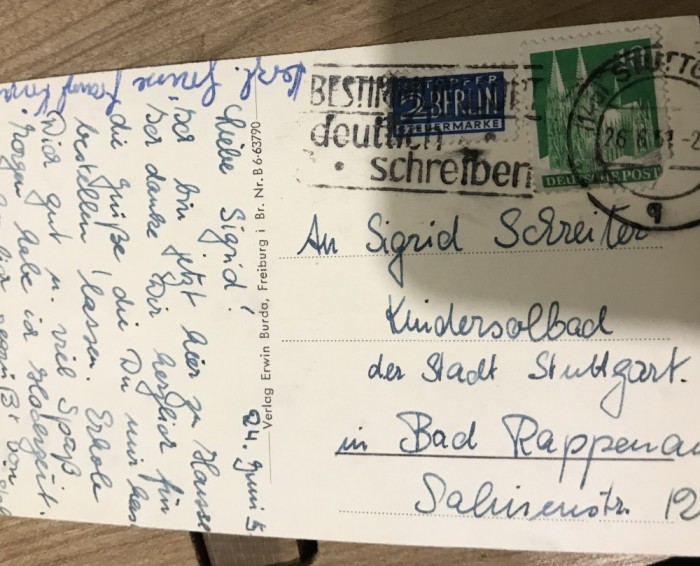 BESTIM
deutlich
schreiben
NOTOPFER
2 BERLIN
STEUERMARKE
DEUTSCHE POST
STUTTG
26.6.51.-2
q
An Sigrid Schreiter
Kindersolbad
der Stadt Stuttgart.
in Bad Rappenau
Salinenstr. 12
Verlag Erwin Burda, Freiburg i Br. Nr. B 6-63790
24. Juni 5
Liebe Sigrid!
bin jetzt hier zu Hause
danke Dir herzlich für
die Grüße die Du mir has
bestellen lassen. Erhole
Dich gut u. viel Spaß
habe ich
gegrüßt von
Herzl. Grüsse